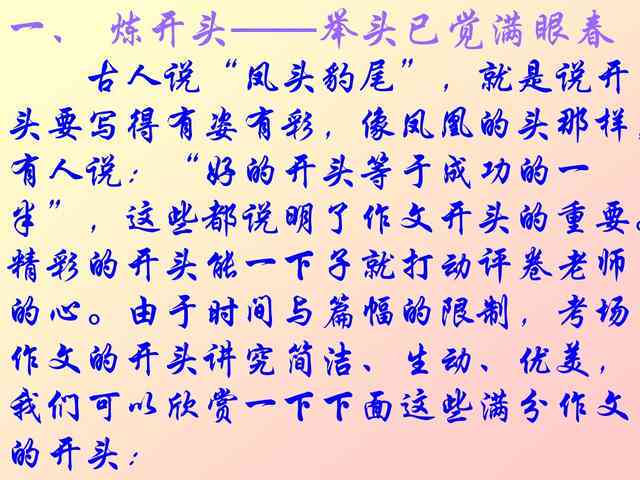 一、 炼开头——举头已觉满眼春
古人说“凤头豹尾”，就是说开
头要写得有姿有彩，像凤凰的头那样，
有人说：“好的开头等于成功的一
半”，这些都说明了作文开头的重要。
精彩的开头能一下子就打动评卷老师
的心。由于时间与篇幅的限制，考场
作文的开头讲究简洁、生动、优美，
我们可以欣赏一下下面这些满分作文
的开头：